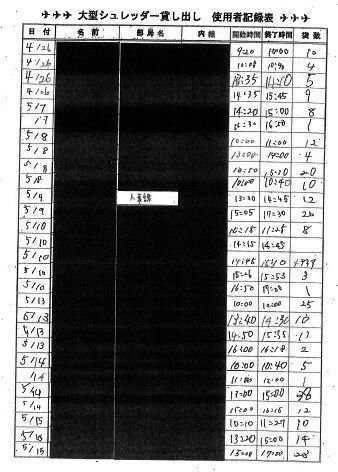 ✈✈✈ 大型シュレッダー貸し出し 使用者記録表 ✈✈✈
日付 名前 部局名 内線 開始時間 終了時間 袋数
4/26 9:20 10:00 10
4/26 4
4/26 5
4/26 14:35 15:45 9
5/7 14:20 15:00 8
1/7 16:30 16:50 1
5/8 10:00 11:00 12
5/8 13:00 14:00 4
5/8 20
5/8 10:40 10
5/9 13:20 14:45 12
5/9 15:05 17:30 26
5/10 8
5/10 14:15 14:45
5/10 14:45
5/10 15:26 15:53 3
5/10 16:50 1
5/13 10:00 25
5/13 13:40 14:30 10
5/13 14:50 15:35
5/13 16:00 16:18 2
5/14 10:00 10:40 5
1/14 11:00 12:00 1
5/14 13:00 15:00 28
5/14 15:00 12
5/15 10:10 11:27 10
5/15 13:20 15:00 14
5/15 15:00 17:00 28